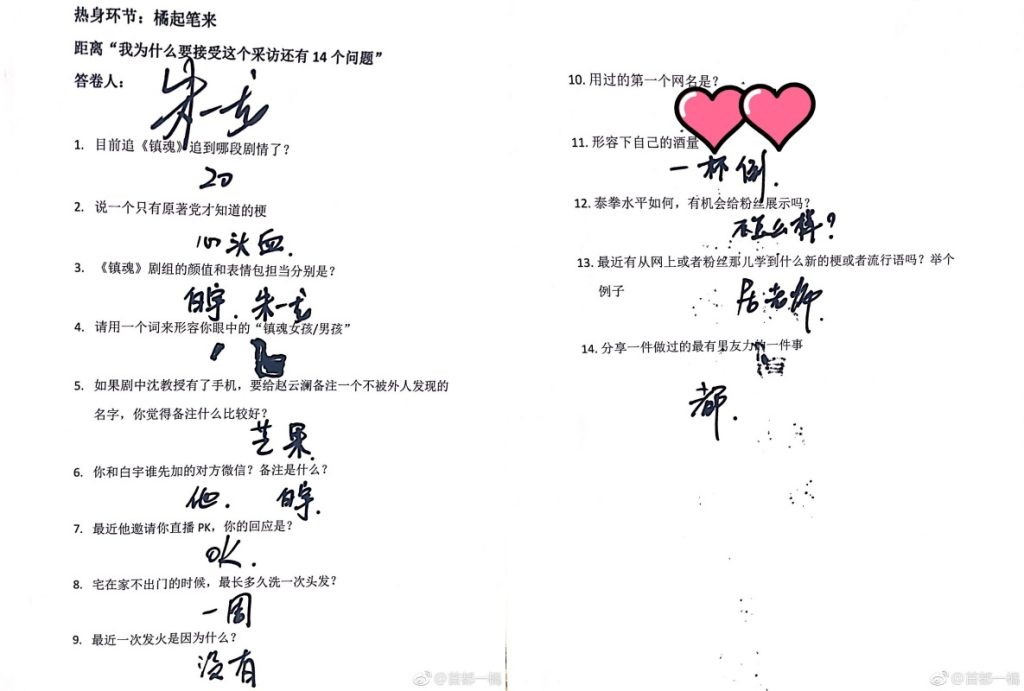 热身环节：橘起笔来
距离“我为什么要接受这个采访还有 14 个问题”
答卷人：
朱一龙
1. 目前追《镇魂》追到哪段剧情了？
20
2. 说一个只有原著党才知道的梗
心头血.
3. 《镇魂》剧组的颜值和表情包担当分别是？
白宇. 朱一龙
4. 请用一个词来形容你眼中的“镇魂女孩/男孩”
5. 如果剧中沈教授有了手机，要给赵云澜备注一个不被外人发现的
名字，你觉得备注什么比较好？
芒果.
6. 你和白宇谁先加的对方微信？备注是什么？
他. 白宇.
7. 最近他邀请你直播 PK，你的回应是？
OK.
8. 宅在家不出门的时候，最长多久洗一次头发？
一周
9. 最近一次发火是因为什么？
没有
10. 用过的第一个网名是？
11. 形容下自己的酒量
一杯倒.
12. 泰拳水平如何，有机会给粉丝展示吗？
不怎么样？
13. 最近有从网上或者粉丝那儿学到什么新的梗或者流行语吗？举个
例子
居老师.
14. 分享一件做过的最有男友力的一件事
都.
@首都一橘
@首都一橘